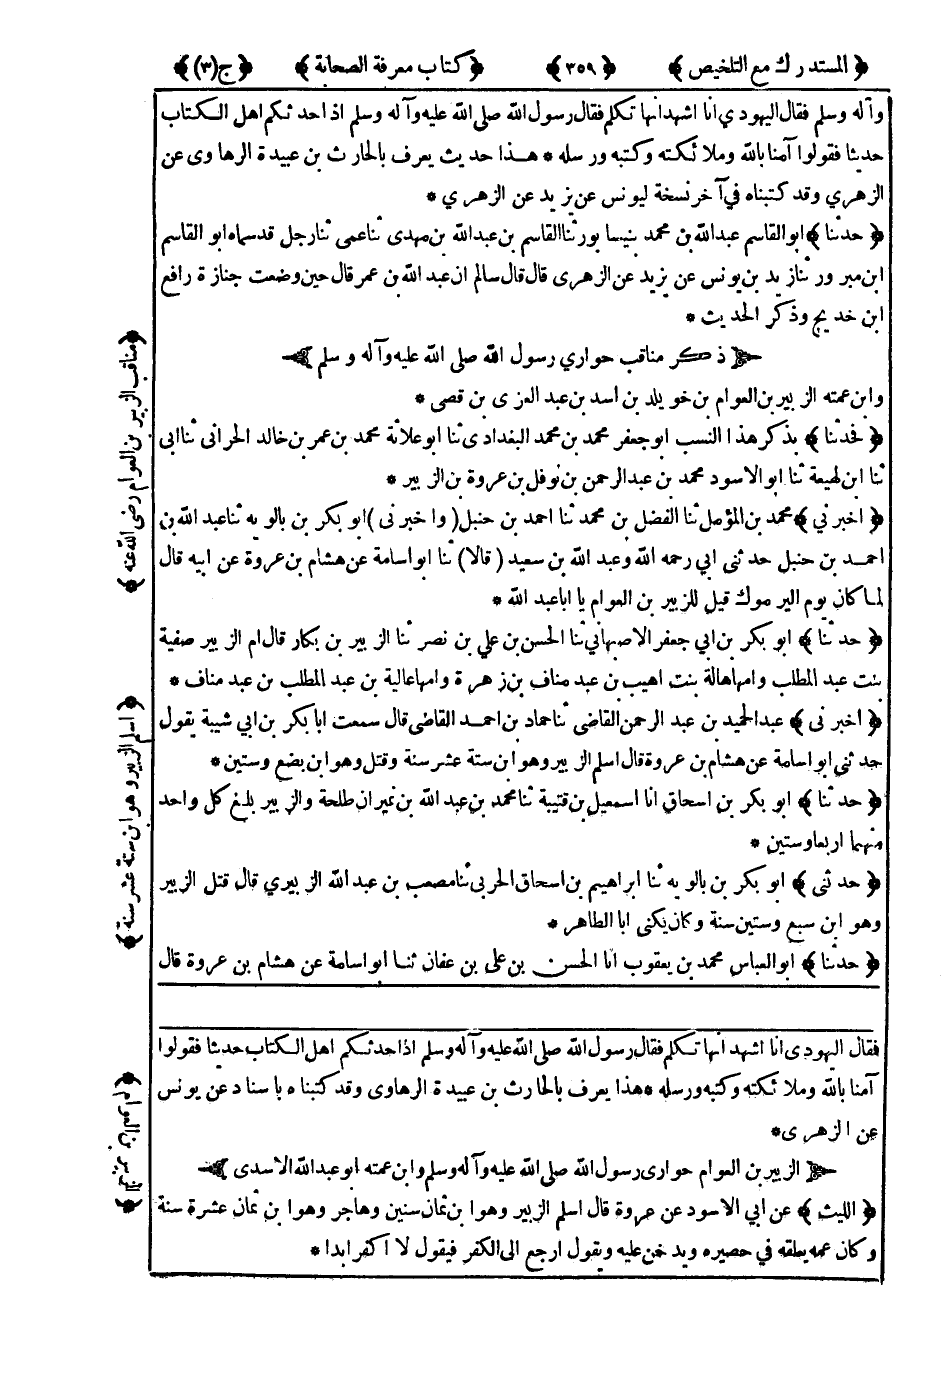 ﴿ المستدرك مع التلخيص ﴾ ﴿ ٣٥٩ ﴾ ﴿ كتاب معرفة الصحابة ﴾ ﴿ ج(٣) ﴾
وآله وسلم فقال اليهودي انا اشهد انها تكلم فقال رسول الله صلى الله عليه وآله وسلم اذا حدثكم اهل الكتاب
حديثا فقولوا آمنا بالله وملائكته وكتبه ورسله * هذا حديث يعرف بالحارث بن عبيدة الرهاوى عن
الزهري وقد كتبناه في آخر نسخة ليونس عن يزيد عن الزهري *
﴿ حدثنا ﴾ ابو القاسم عبدالله بن محمد بنيسابور ثنا القاسم بن عبدالله بن مهدى ثنا عمى ثنا رجل قد سماه ابو القاسم
ابن مبرور ثنا زيد بن يونس عن يزيد عن الزهرى قال قال سالم ان عبد الله بن عمر قال حين وضعت جنازة رافع
ابن خديج وذكر الحديث *
﴿ ذكر مناقب حواري رسول الله صلى الله عليه وآله وسلم ﴾
وابن عمته الزبير بن العوام بن خويلد بن أسد بن عبد العزى بن قصى *
﴿ فحدثنا ﴾ بذكر هذا النسب ابو جعفر محمد بن محمد البغدادى ثنا ابو علاثة محمد بن عمر بن خالد الحرانى ثنا ابى
ثنا ابن لهيعة ثنا ابو الاسود محمد بن عبد الرحمن بن نوفل بن عروة بن الزبير *
﴿ اخبرني ﴾ محمد بن المؤمل ثنا الفضل بن محمد ثنا احمد بن حنبل ( واخبرنى ) ابو بكر بن بالويه ثنا عبد الله بن
احمد بن حنبل حدثنى ابي رحمه الله وعبد الله بن سعيد ( قالا ) ثنا ابو اسامة عن هشام بن عروة عن ابيه قال
لما كان يوم اليرموك قيل للزبير بن العوام يا ابا عبد الله *
﴿ حدثنا ﴾ ابو بكر بن ابي جعفر الاصبهاني ثنا الحسن بن علي بن نصر ثنا الزبير بن بكار قال ام الزبير صفية
بنت عبد المطلب وامها هالة بنت اهيب بن عبد مناف بن زهرة وامها عالية بن عبد المطلب بن عبد مناف *
﴿ اخبرنى ﴾ عبدالحميد بن عبد الرحمن القاضى ثنا حماد بن احمد القاضى قال سمعت ابا بكر بن ابي شيبة يقول
حدثنى ابو اسامة عن هشام بن عروة قال اسلم الزبير وهو ابن ستة عشر سنة وقتل وهو ابن بضع وستين *
﴿ حدثنا ﴾ ابو بكر بن اسحاق انا اسمعيل بن قتيبة ثنا محمد بن عبد الله بن نمير ان طلحة والزبير بلغ كل واحد
منهما اربعا وستين *
﴿ حدثنى ﴾ ابو بكر بن بالويه ثنا ابراهيم بن اسحاق الحربى ثنا مصعب بن عبد الله الزبيري قال قتل الزبير
وهو ابن سبع وستين سنة وكان يكنى ابا الطاهر *
﴿ حدثنا ﴾ ابو العباس محمد بن يعقوب انا الحسن بن على بن عفان ثنا ابو اسامة عن هشام بن عروة قال
فقال اليهودى انا اشهد انها تكلم فقال رسول الله صلى الله عليه وآله وسلم اذا حدثكم اهل الكتاب حديثا فقولوا
آمنا بالله وملائكته وكتبه ورسله * هذا يعرف بالحارث بن عبيدة الرهاوى وقد كتبناه باسناد عن يونس
عن الزهرى *
﴿ الزبير بن العوام حوارى رسول الله صلى الله عليه وآله وسلم وابن عمته ابو عبد الله الاسدى ﴾
﴿ الليث ﴾ عن ابي الاسود عن عروة قال اسلم الزبير وهو ابن ثمان سنين وهاجر وهو ابن ثمان عشرة سنة
وكان عمه يعلقه في حصيره ويدخن عليه ويقول ارجع الى الكفر فيقول لا اكفر ابدا *
﴿ مناقب الزبير بن العوام رضى الله عنه ﴾
﴿ اسلم الزبير وهو ابن ستة عشر سنة ﴾
﴿ الزبير بن العوام ﴾